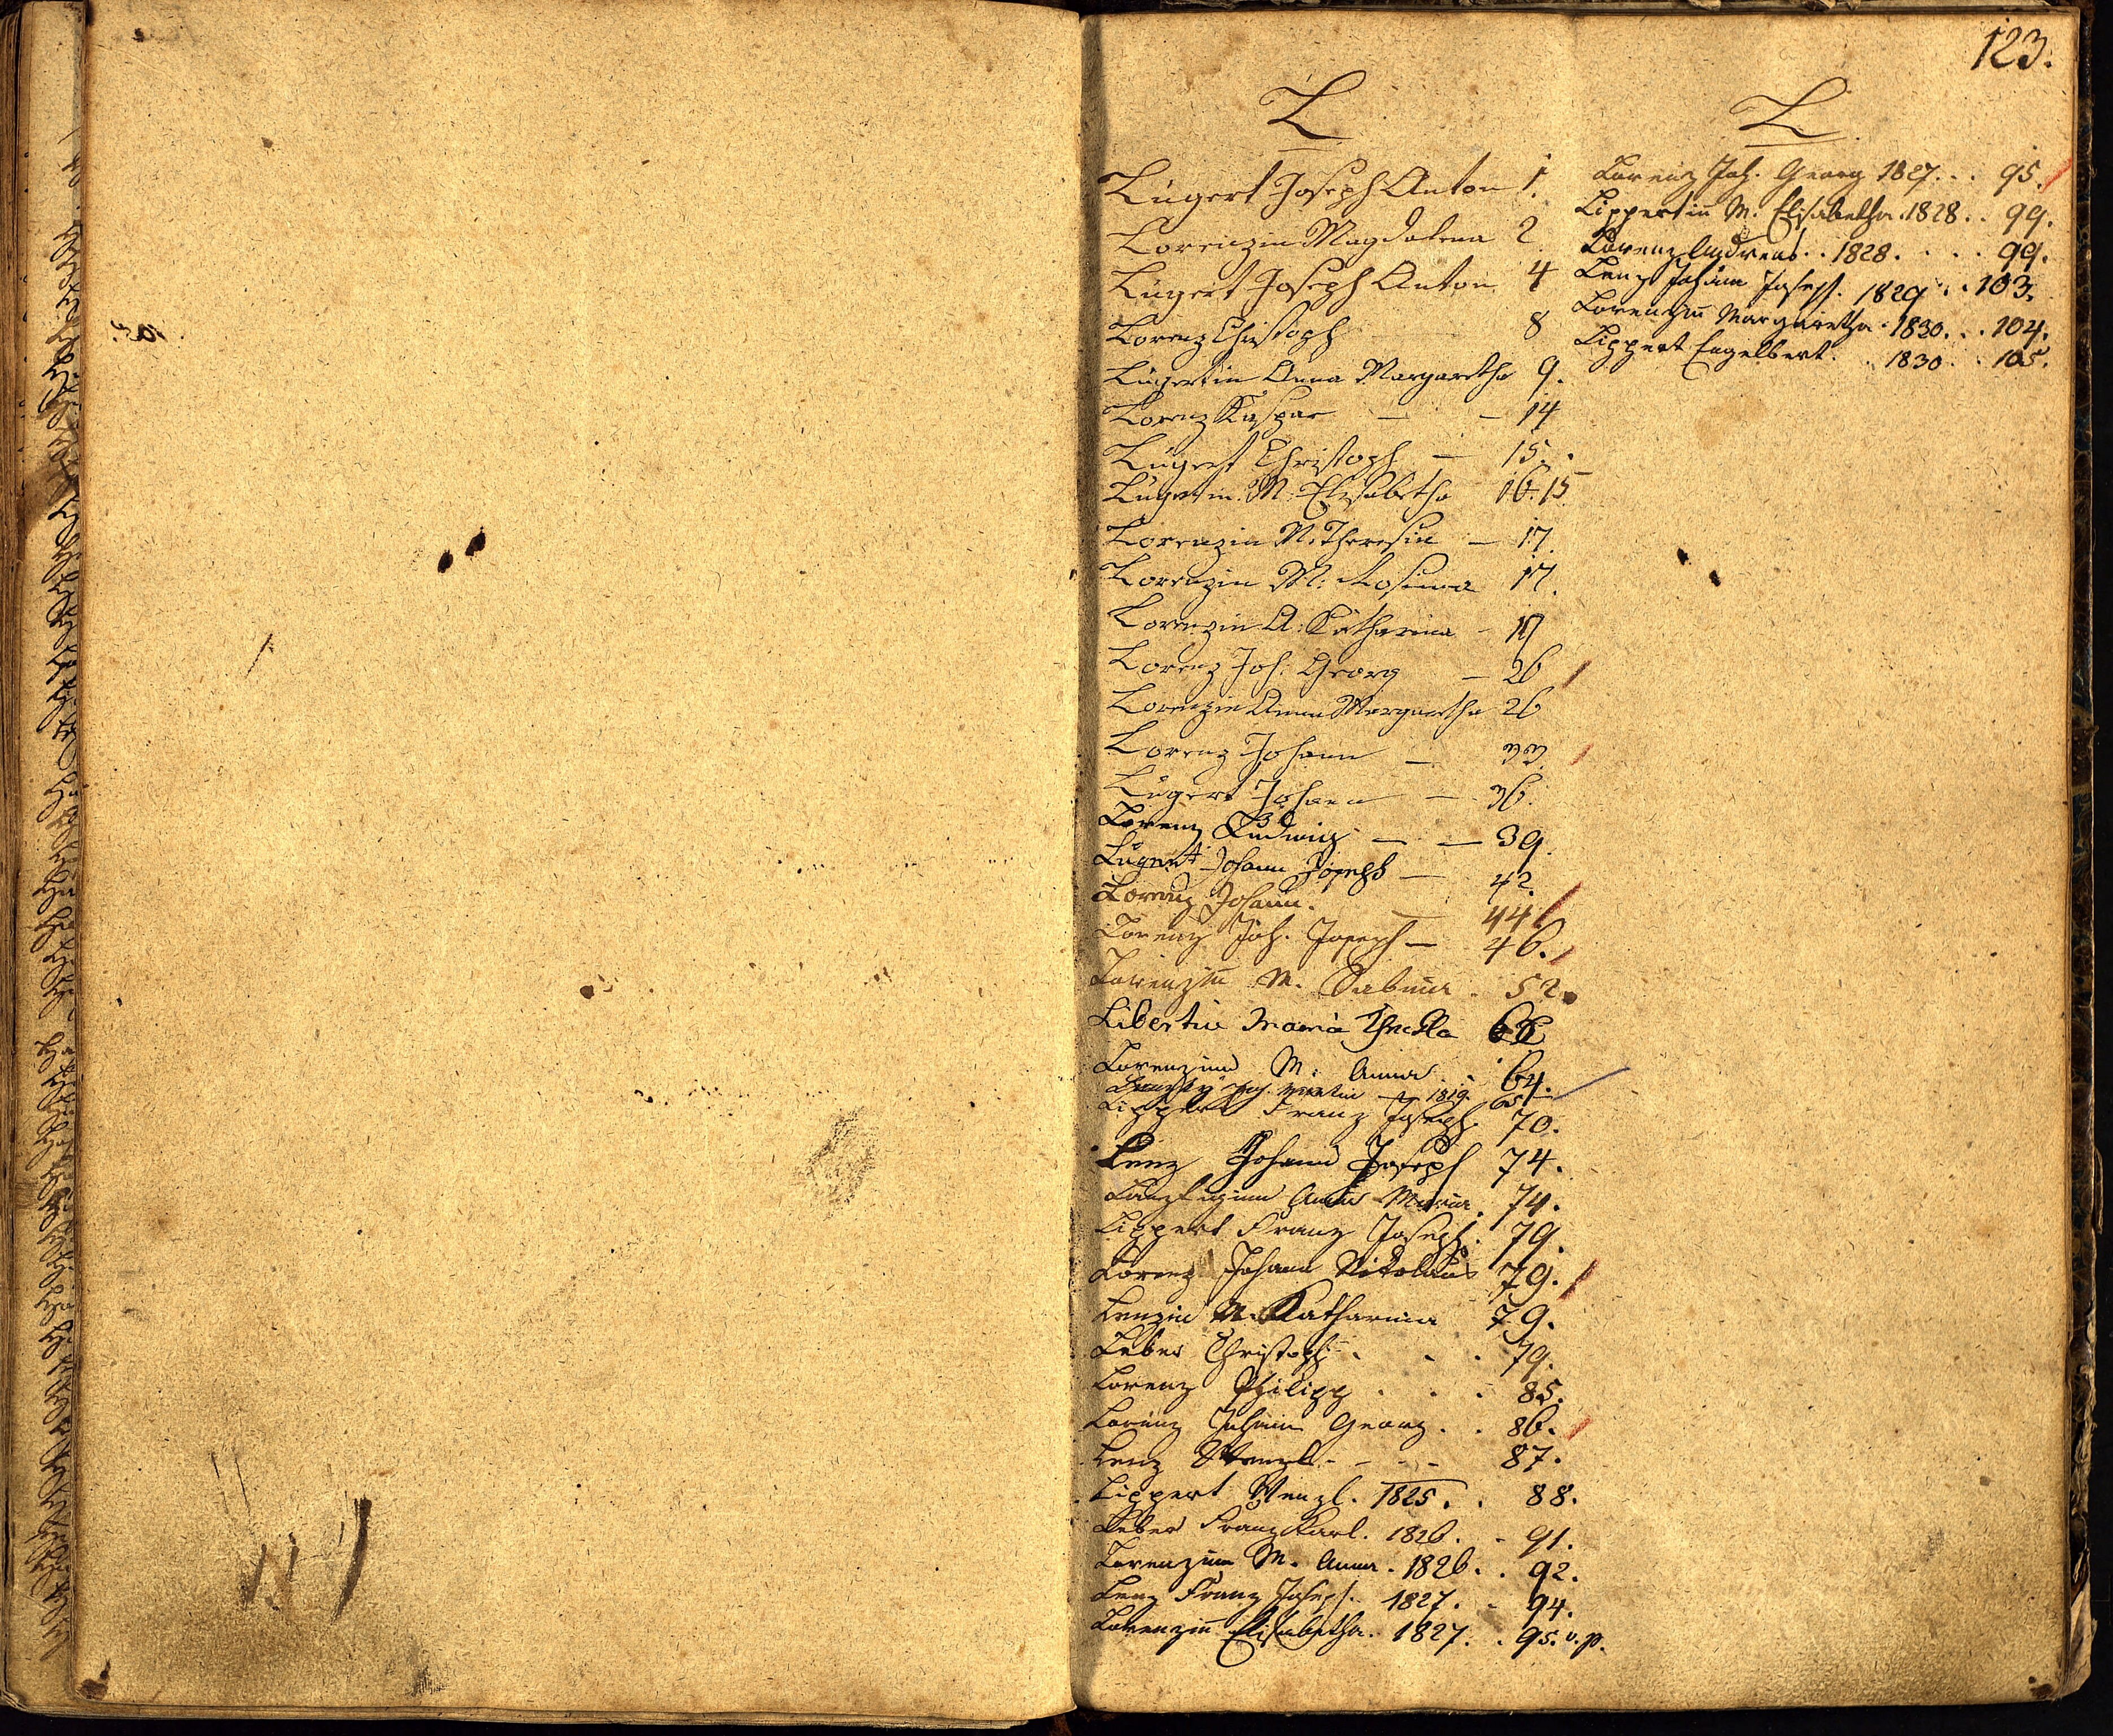 123.
L
Lugert Joseph Anton 1.
Lorenzin Magdalena 2
Lugert Joseph Anton 4
Lorenz Christoph 8
Lugertin Anna Margaretha 9.
Lorenz Kaspar — — 14
Lugert Christoph — 15.
Lugertin M: Elisabetha 16. 15
Lorenzin M: Theresia — 17.
Lorenzin M: Rosina 17.
Lorenzin A: Katharina - 17
Lorenz Joh: Georg — 26
Lorenzin Anna Margaretha 26
Lorenz Johann — 33.
Lugert Johann — 36.
Lorenz Ludwig — — 39.
Lugert Johann Joseph — 42.
Lorenz Johann. — 44
Lorenz Joh. Joseph — 46.
Lorenzin M. Sabina . 52.
Libertin Maria Thekla
Lorenzinn M. Anna . 64.
Joh. Martin — 1819. 65
Lippert Franz Joseph. 70.
Lenz Johann Joseph 74.
Anna Maria. 74.
Lippert Franz Joseph. 79.
Lorenz Johann Nikolaus 79.
Lenzin M. Katharina 79.
Leber Christoph . . . 79.
Lorenz Philipp . . . 85.
Lorenz Johann Georg . . 86.
Lenz Wenzl - - - - 87.
Lippert Wenzl. 1825. . 88.
Leber Franz Karl. 1826. . 91.
Lorenzinn M. Anna. 1826. . 92.
Lenz Franz Joseph. 1827. - 94.
Lorenzinn Elisabetha. 1827. . 95. v. p.
L
Lorenz Joh. Georg 1827. . . 95.
Lippertinn M. Elisabetha. 1828. . 99.
Lorenz Andreas. . 1828. . . . 99.
Lenz Johann Joseph. 1829 . . 103.
Lorenzinn Margaretha. 1830. . . 104.
Lippert Engelbert. . . 1830. . 105.